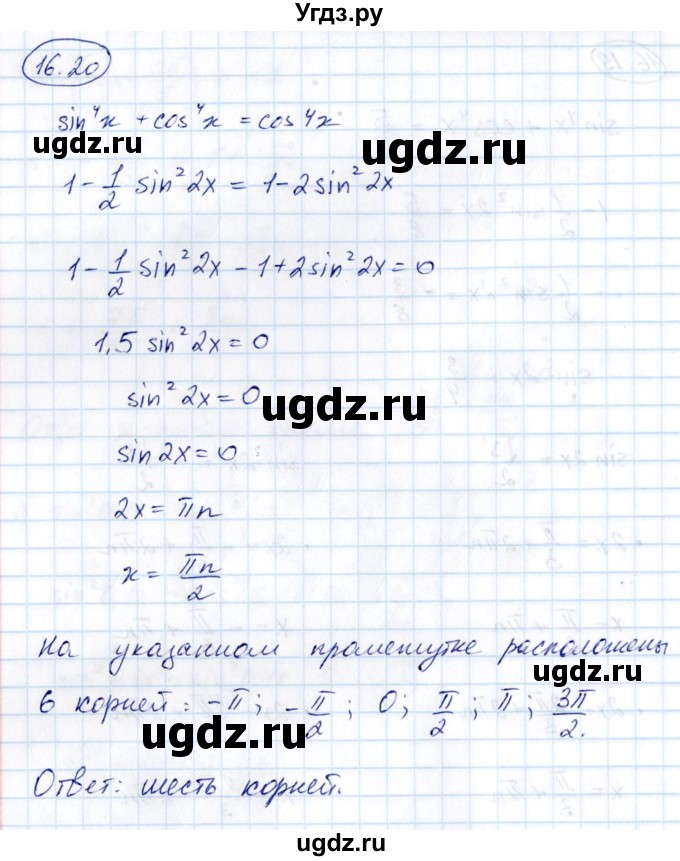 Угдз.ру
16.20
sin⁴x + cos⁴x = cos4x
ugdz.ru ugdz.ru
1 - 1/2 sin²2x = 1 - 2sin²2x
1 - 1/2 sin²2x - 1 + 2sin²2x = 0
1,5 sin²2x = 0
sin²2x = 0
ugdz.ru
sin2x = 0
2x = πn
x = πn/2
На указанном промежутке расположены
ugdz.ru
6 корней: -π; -π/2; 0; π/2; π; 3π/2.
ugdz.ru
Ответ: шесть корней.
ugdz.ru